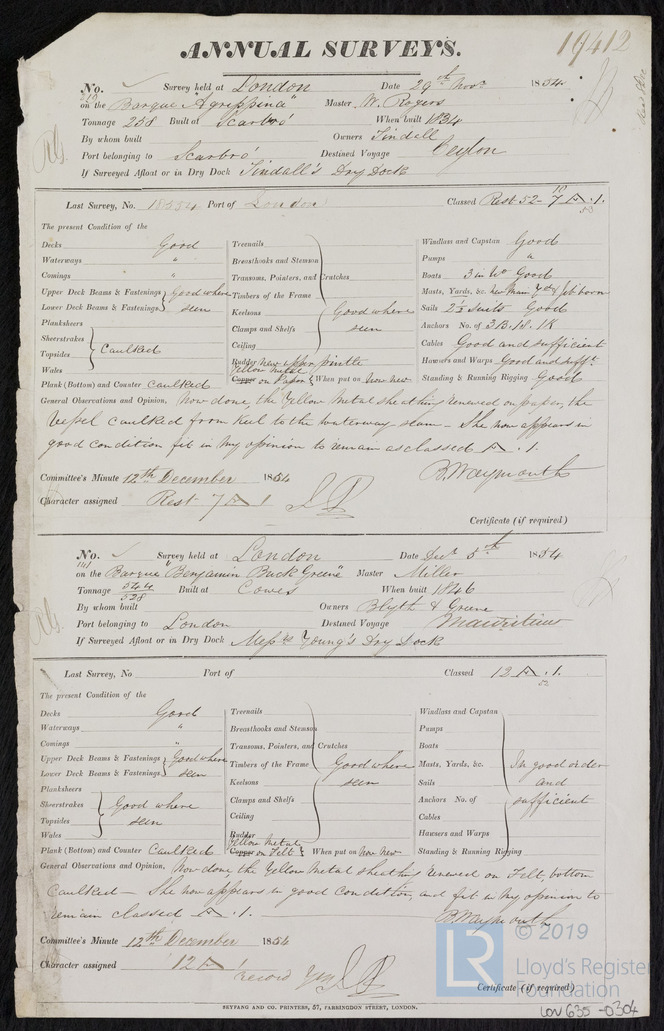 ANNUAL SURVEYS.
19412
No. Survey held at London Date 29th Novr 1854
on the Barque "Agrippina" Master W. Rogers
Tonnage 258 Built at Scarbro' When built 1834
By whom built Owners Tindell
Port belonging to Scarbro' Destined Voyage Ceylon
If Surveyed Afloat or in Dry Dock Tindall's Dry Dock
Last Survey, No. 18554 Port of London Classed Rest. 52-7 A.1.
The present Condition of the
Decks Good Treenails Windlass and Capstan Good
Waterways " Breasthooks and Stemson Pumps "
Comings " Transoms, Pointers, and Crutches Boats 3 in No Good
Upper Deck Beams & Fastenings Good where Timbers of the Frame Masts, Yards, &c. new Main Yd & Jib boom
Lower Deck Beams & Fastenings seen Keelsons Good where Sails 2½ suits Good
Planksheers Clamps and Shelfs seen Anchors No. of 3B. 1S. 1K
Sheerstrakes Ceiling Cables Good and sufficient
Topsides Caulked Rudder New upper pintle Hawsers and Warps Good and sufft.
Wales Yellow Metal
Plank (Bottom) and Counter Caulked Copper on Paper When put on Now New Standing & Running Rigging Good
General Observations and Opinion, Now done, the Yellow Metal sheathing renewed on paper, the
Vessel caulked from keel to the waterway seam - She now appears in
good condition fit in my opinion to remain as classed A.1.
B. Waymouth
Committee's Minute 12th December 1854
Character assigned Rest. 7 A 1
Certificate (if required)
No. Survey held at London Date Decr 5th 1854
141
on the Barque "Benjamin Buck Greene" Master Miller
Tonnage 544/528 Built at Cowes When built 1846
By whom built Owners Blyth & Greene
Port belonging to London Destined Voyage Mauritius
If Surveyed Afloat or in Dry Dock Messrs Young's Dry Dock
Last Survey, No Port of Classed 12 A.1.
52
The present Condition of the
Decks Good Treenails Windlass and Capstan
Waterways " Breasthooks and Stemson Pumps
Comings " Transoms, Pointers, and Crutches Boats
Upper Deck Beams & Fastenings Good where Timbers of the Frame Good where Masts, Yards, &c. In good order
Lower Deck Beams & Fastenings seen Keelsons seen Sails and
Planksheers
Sheerstrakes Good where Clamps and Shelfs Anchors No. of sufficient
Topsides seen Ceiling Cables
Wales Rudder Hawsers and Warps
Yellow Metal
Plank (Bottom) and Counter Caulked Copper on Felt When put on Now New Standing & Running Rigging
General Observations and Opinion, Now done the Yellow Metal sheathing renewed on Felt, bottom
caulked - She now appears in good condition, and fit in my opinion to
remain classed A.1.
B. Waymouth
Committee's Minute 12th December 1854
Character assigned 12 A 1
Certificate (if required)
SEYFANG AND CO. PRINTERS, 57, FARRINGDON STREET, LONDON.
LR © 2019
Lloyd's Register
Foundation
LON 635 -0304